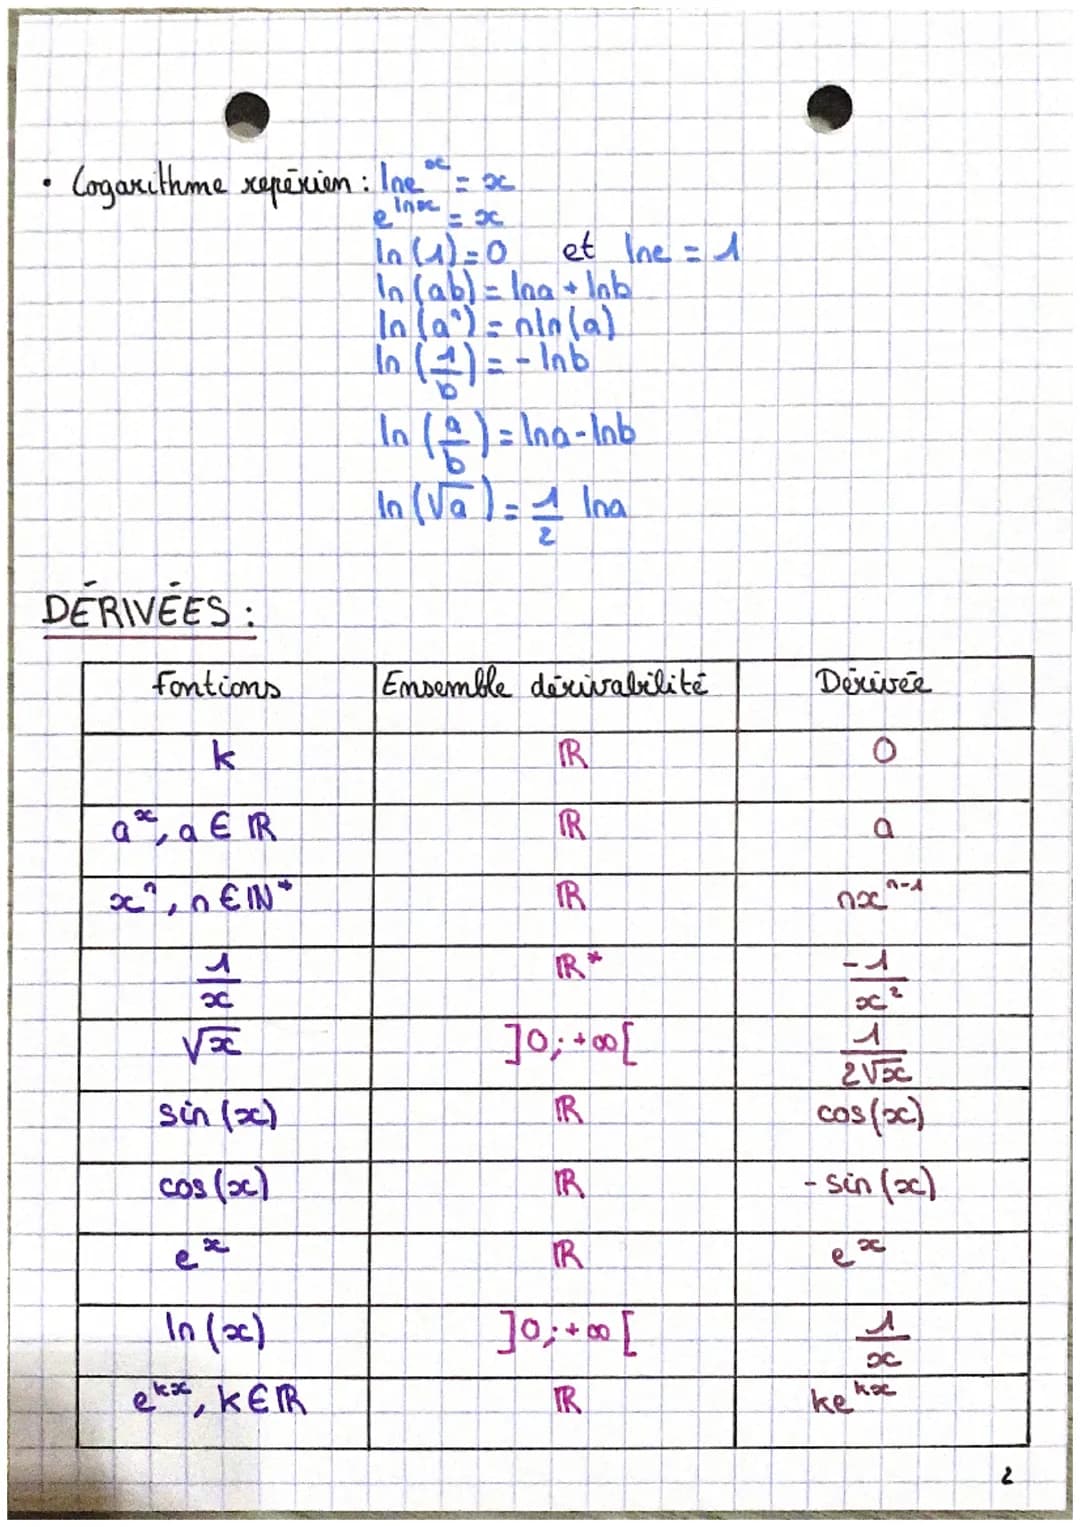 • Logarithme repérien : lne^x = x
e^lnx = x
ln(1) = 0 et lne = 1
ln(ab) = lna + lnb
ln(a^n) = nln(a)
ln(1/b) = - lnb
ln(a/b) = lna - lnb
ln(√a) = 1/2 lna
DÉRIVÉES :
Fontions | Ensemble dérivabilité | Dérivée
k | ℝ | 0
a^x, a ∈ ℝ | ℝ | a
x^n, n ∈ ℕ* | ℝ | nx^(n-1)
1/x | ℝ* | -1/x²
√x | ]0;+∞[ | 1/(2√x)
sin(x) | ℝ | cos(x)
cos(x) | ℝ | - sin(x)
e^x | ℝ | e^x
ln(x) | ]0;+∞[ | 1/x
e^kx, k ∈ ℝ | ℝ | ke^kx
2